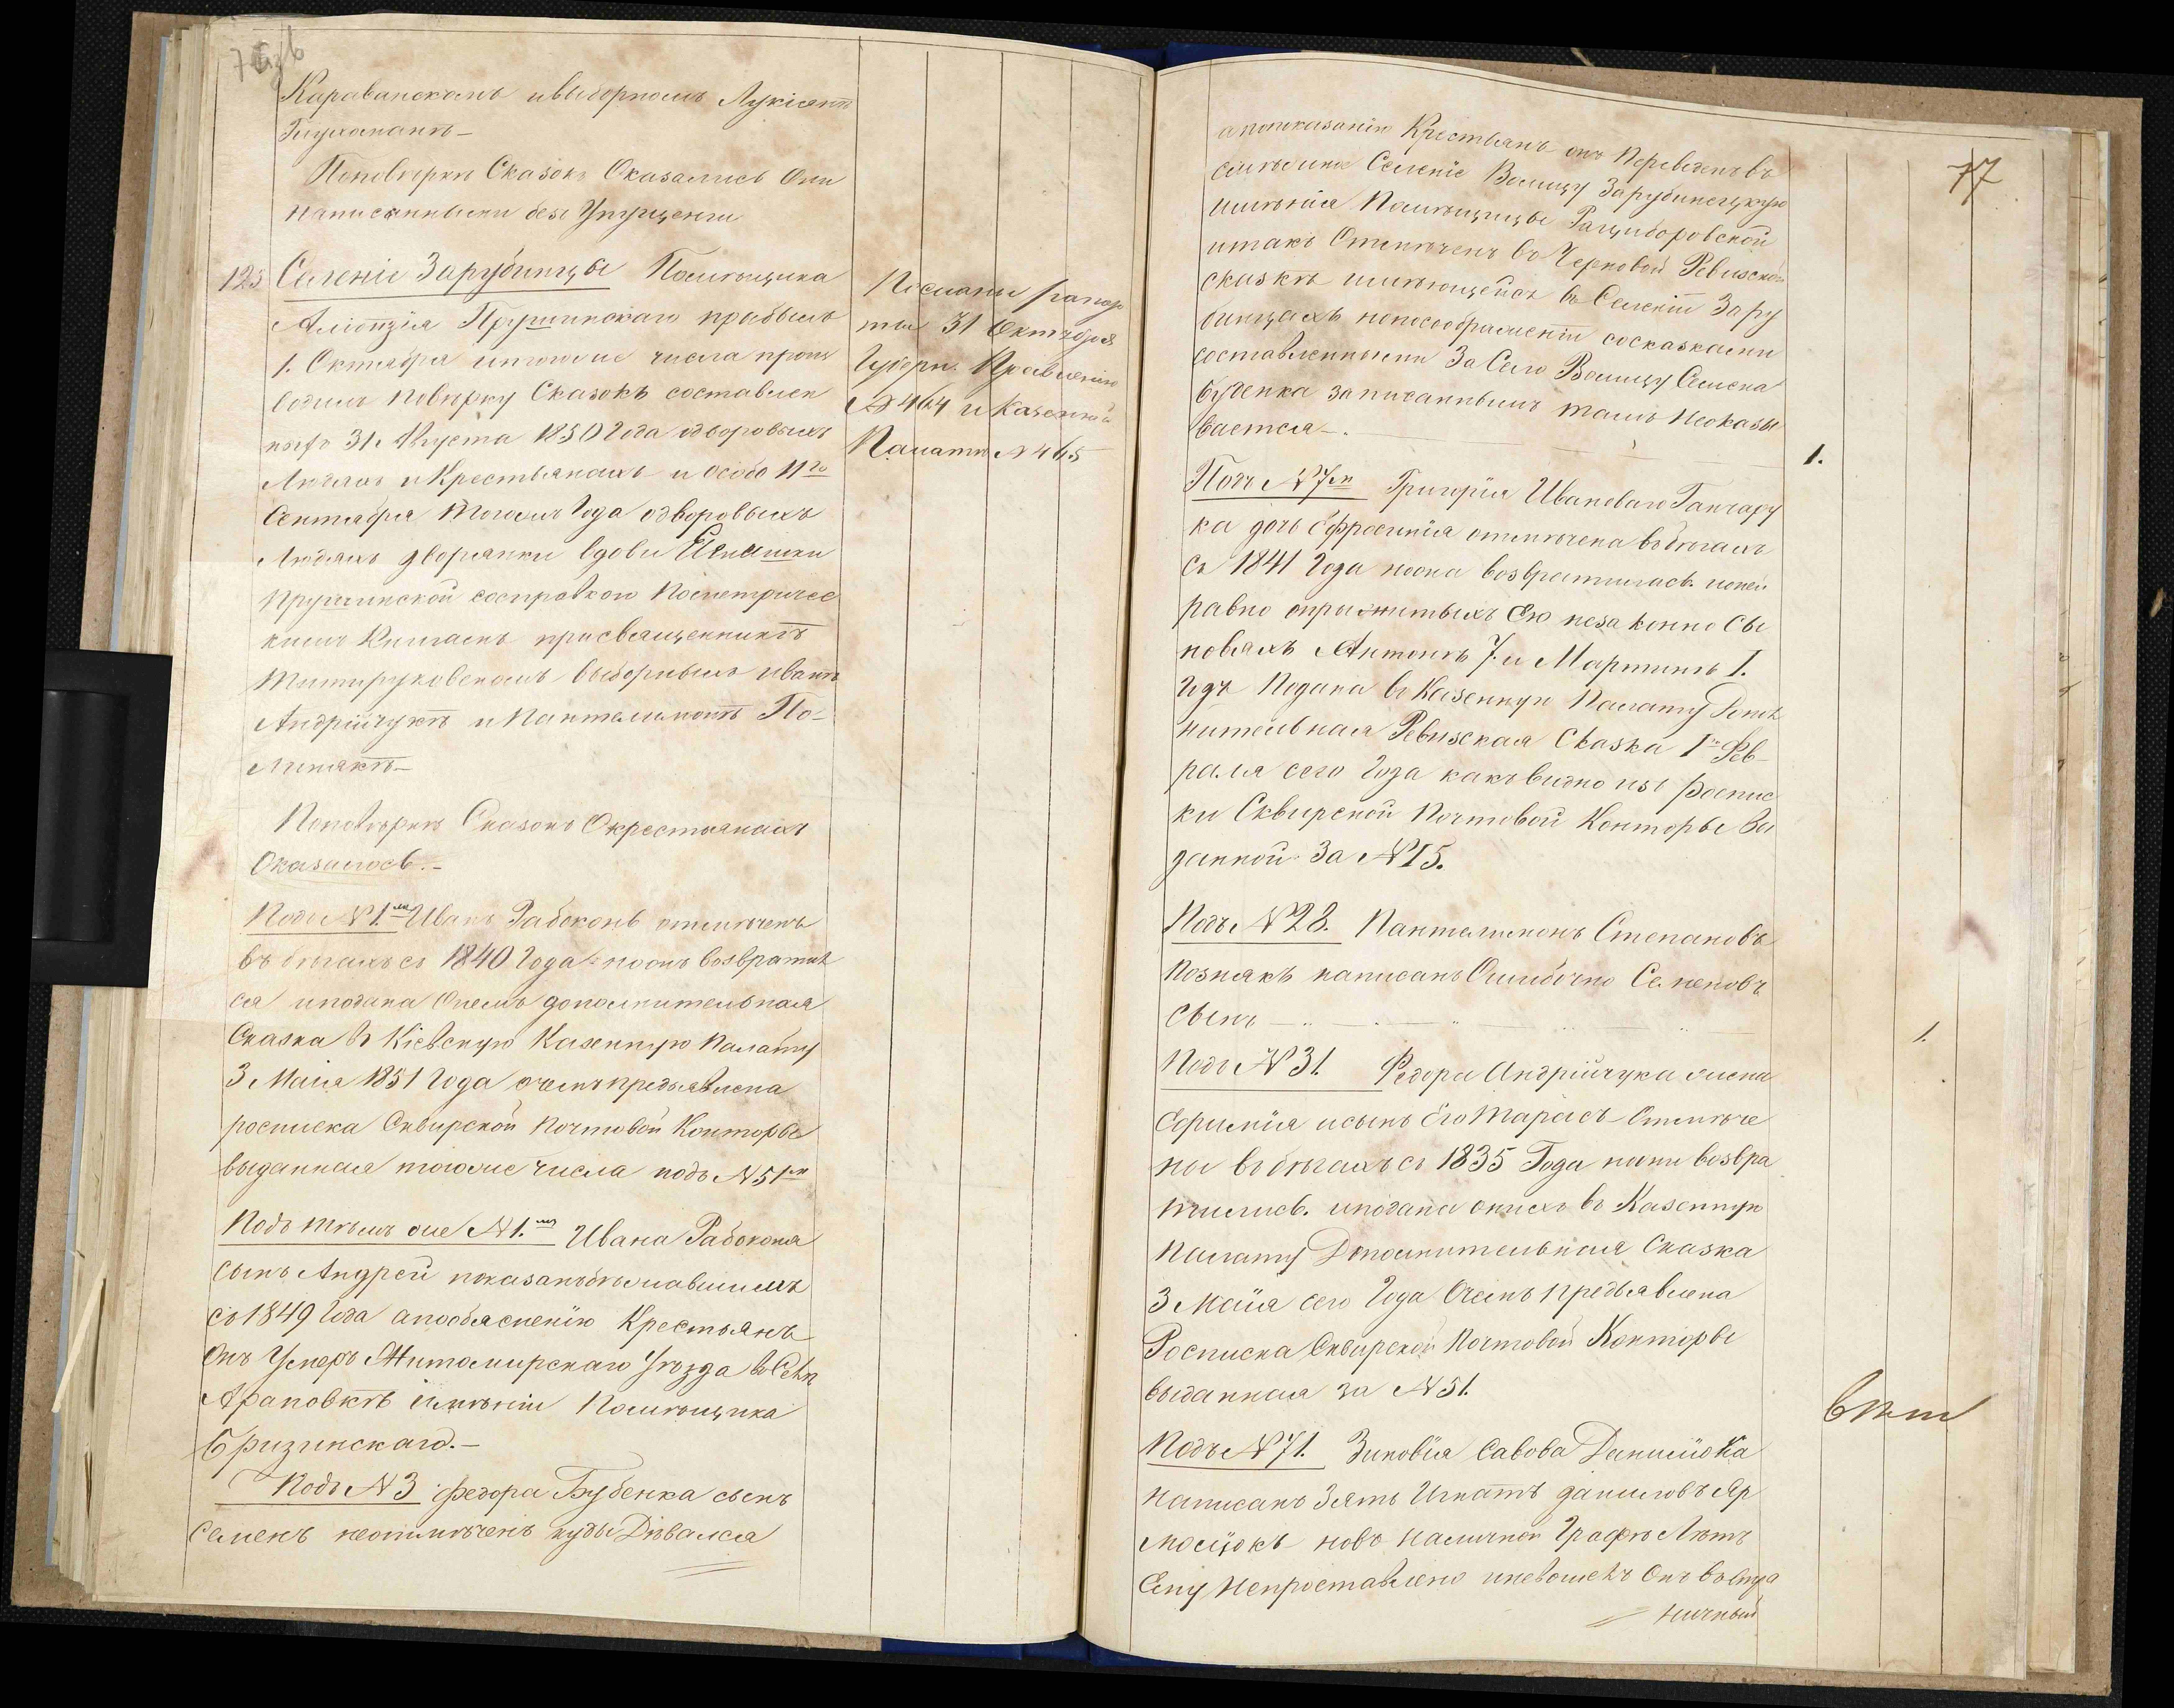 76зв
Караванскомъ и выборномъ Лукіянѣ
Поповѣркѣ Сказокъ Оказались Они
написанными безъ Упущенія
123 Селеніе Зарубинцы Помѣщика
Прушинскаго прибылъ
1. Октября и тогоже числа произ
водилъ повѣрку Сказокъ составлен
ныхъ 31. Августа 1850 Года о дворовыхъ
Людяхъ и Крестьянахъ и особо 11го
Сентября тогожъ Года одворовыхъ
Людяхъ дворянки вдовы
Прушинской сосправкою по
кимъ Книгамъ присвященникѣ
выборныхъ Иванѣ
Андрійчукѣ и Пантелимонѣ По-
линякѣ–
Поповѣркѣ Сказокъ Окрестьянахъ
Оказалось.–
Подъ №1.мъ Иванъ Рабоконь отмѣченъ
въ бѣгахъ съ 1840 Года – ноонъ возвратил
ся иподана Онемъ дополнительная
Сказка въ Кіевскую Казенную Палату
3 Маія 1851 Года очемъ предъявлена
росписка Сквирской Почтовой Конторы
выданная тогоже числа подъ №51мъ
Подъ тѣмъ же №1.мъ Ивана Рабоконя
сынъ Андрей показанъ бѣжавшимъ
съ 1849 Года апообъясненію Крестьянъ
Онъ Умеръ Житомирскаго Уѣзда въ Селѣ
Араповкѣ имѣніи Помѣщика
Бризинскаго.–
Подъ №3 Федора Бубенка сынъ
Семенъ неотмѣченъ куды Дѣвался
Посланы рапор
ты 31 Октября
Губерн. Правленію
№464 и Казенной
Палатѣ №465
77
апопоказанію Крестьянъ онъ Переведенъ въ
Селеніе Волицу Зарубинецкую
имѣнія Помѣщицы Рациборовской
итакъ Отмѣченъ въ Черновой Ревизской
сказкѣ имѣющейся въ Селеніи Зару
бинцахъ нопосоображеніи сосказками
составленными За Село Волицу Семена
Бубенка записаннымъ тамъ Неоказы
вается–.
1.
Подъ №7мъ Григорія Иванова Ганчару
ка дочь Ефросинія отмѣчена въ бѣгахъ
съ 1841 Года ноона возвратилась. ионей
равно оприжитыхъ Ею незаконно Сы
новьяхъ Антонѣ 7. и Мартинѣ 1.
Годъ Подана въ Казенную Палату Допол
нительная Ревизская Сказка 1го Фев–
раля сего Года какъ видно изъ роспис
ки Сквирской Почтовой Конторы Вы
данной За №15.
Подъ №28. Пантелимонъ Степановъ
Познякъ написанъ Ошибочно Семеновъ
Сынъ –
1.
Подъ №31. Федора Андрійчука жена
Ефимія исынъ Его Тарасъ Отмѣче
ны въ бѣгахъ съ 1835 Года ниони возвра
тились. иподана онихъ въ Казенную
Палату Дополнительная Сказка
3 Маія сего Года Очемъ предъявлена
Росписка Сквирской Почтовой Конторы
выданная за №51.
Подъ №71. Зиновія Савова Данилюка
написанъ Зять Игнатъ Даниловъ Яр
молюкъ новъ наличной Графѣ Лѣтъ
Ему Непроставлено иневошелъ Онъ въ
ничный